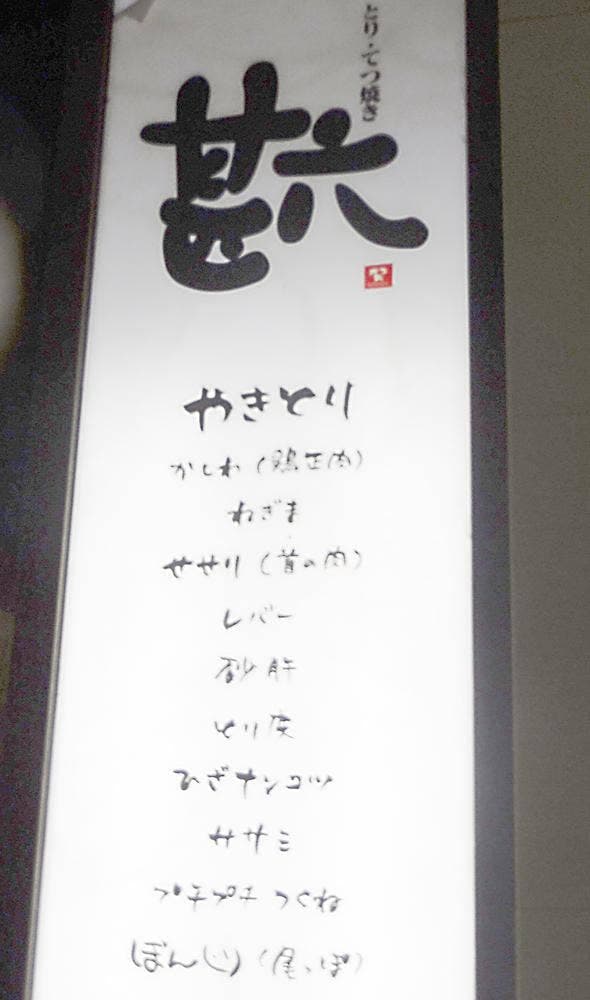 とり・てつ焼き
甚六
やきとり
かしわ（鶏正肉）
ねぎま
せせり（首の肉）
レバー
砂肝
とり皮
ひざナンコツ
ササミ
プチプチつくね
ぼんじり（尾っぽ）